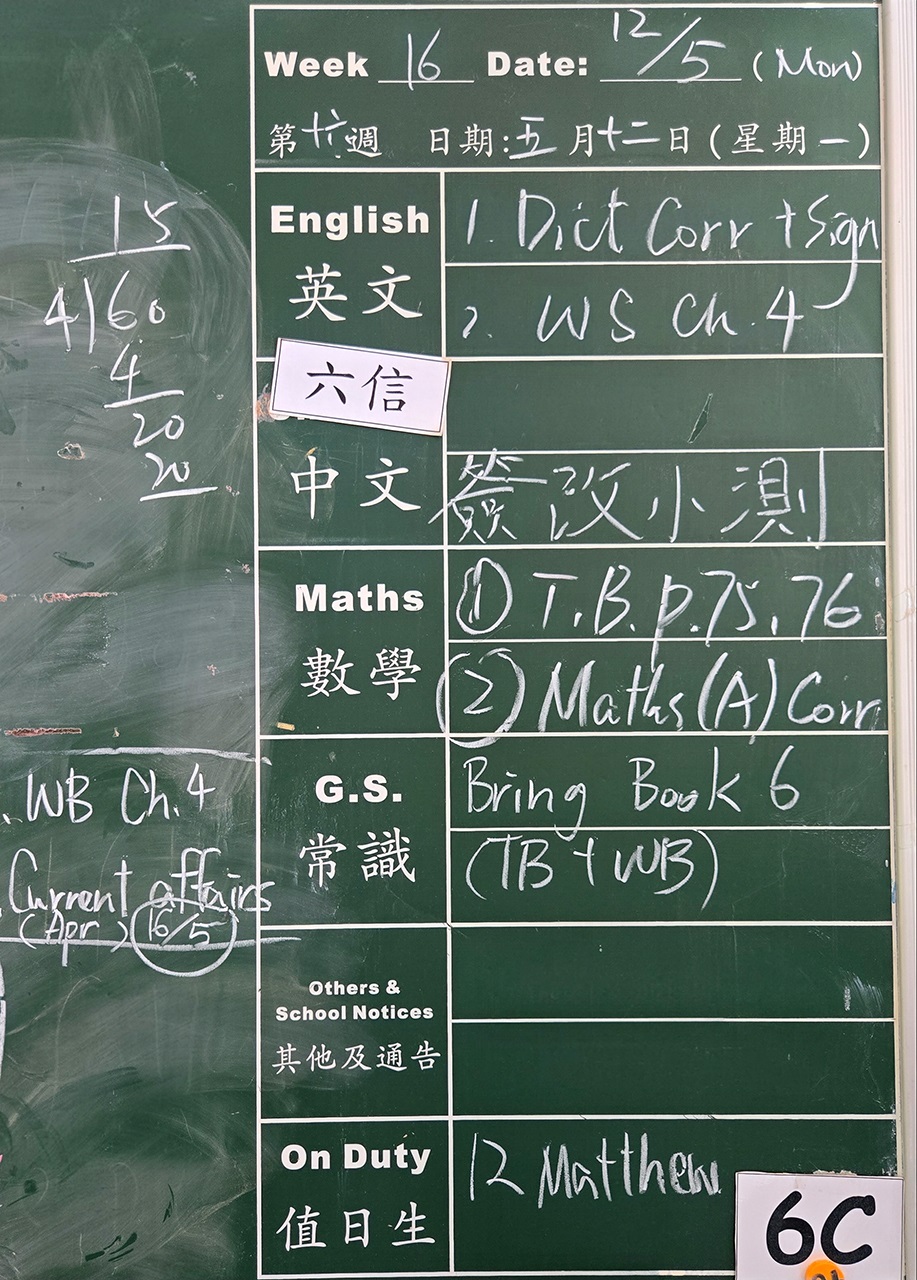 Week 16 Date: 12/5 (Mon)
第十六週 日期:五月十二日(星期一)
English
英文
1. Dict Corr + Sign
2. WS Ch. 4
六信
中文
簽改小測
Maths
數學
① T.B. p.75, 76
② Maths (A) Corr
G.S.
常識
Bring Book 6
(TB + WB)
Others &
School Notices
其他及通告
On Duty
值日生
12 Matthew
6C
15
4)60
4
20
20
WB Ch.4
Current affairs
(Apr) 16/5